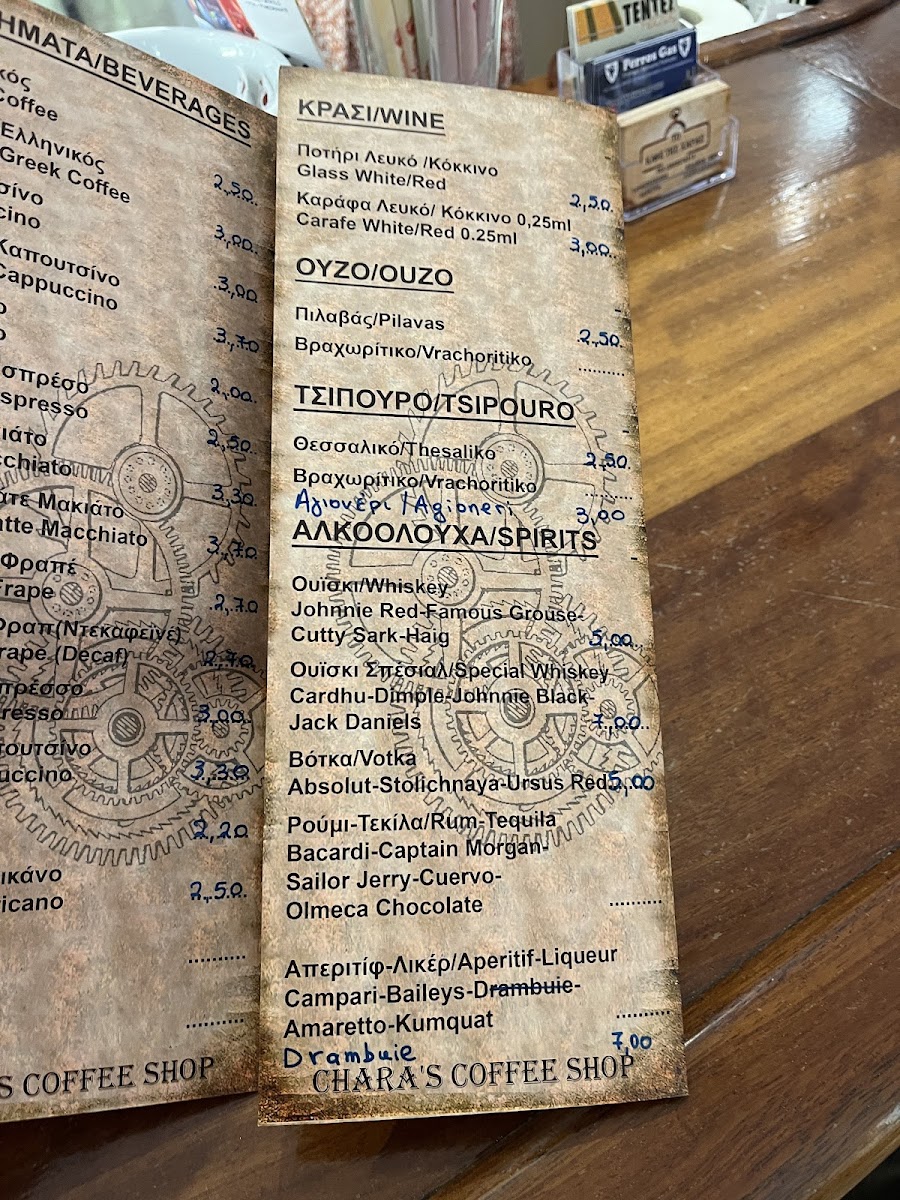 ΗΜΑΤΑ/BEVERAGES
κός
Coffee
Ελληνικός
Greek Coffee 2,50
σίνο
cino 3,00
Καπουτσίνο
Cappuccino 3,00
ο
ο 3,70
σπρέσο
spresso 2,00
ιάτο
cchiato 2,50
άτε Μακιάτο 3,30
atte Macchiato 3,70
Φραπέ
Frape 2,70
Φραπ(Ντεκαφεϊνέ)
rape (Decaf) 2,70
πρέσσο
resso 3,00
πουτσίνο
uccino 3,30
2,20
ικάνο
icano 2,50
..........
..........
'S COFFEE SHOP
ΚΡΑΣΙ/WINE
Ποτήρι Λευκό /Κόκκινο
Glass White/Red 2,50
Καράφα Λευκό/ Κόκκινο 0,25ml
Carafe White/Red 0.25ml 3,00
ΟΥΖΟ/OUZO
Πιλαβάς/Pilavas 2,50
Βραχωρίτικο/Vrachoritiko ..........
ΤΣΙΠΟΥΡΟ/TSIPOURO
Θεσσαλικό/Thesaliko 2,50
Βραχωρίτικο/Vrachoritiko ..........
Αγιονέρι/Agioneri 3,00
ΑΛΚΟΟΛΟΥΧΑ/SPIRITS
Ουϊσκι/Whiskey
Johnnie Red-Famous Grouse-
Cutty Sark-Haig 5,00
Ουϊσκι Σπέσιαλ/Special Whiskey
Cardhu-Dimple-Johnnie Black-
Jack Daniels 7,00
Βότκα/Votka
Absolut-Stolichnaya-Ursus Red 5,00
Ρούμι-Τεκίλα/Rum-Tequila
Bacardi-Captain Morgan-
Sailor Jerry-Cuervo-
Olmeca Chocolate ..........
Απεριτίφ-Λικέρ/Aperitif-Liqueur
Campari-Baileys-Drambuie-
Amaretto-Kumquat ..........
Drambuie 7,00
CHARA'S COFFEE SHOP
ΤΕΝΤΕΣ
Perros Gas